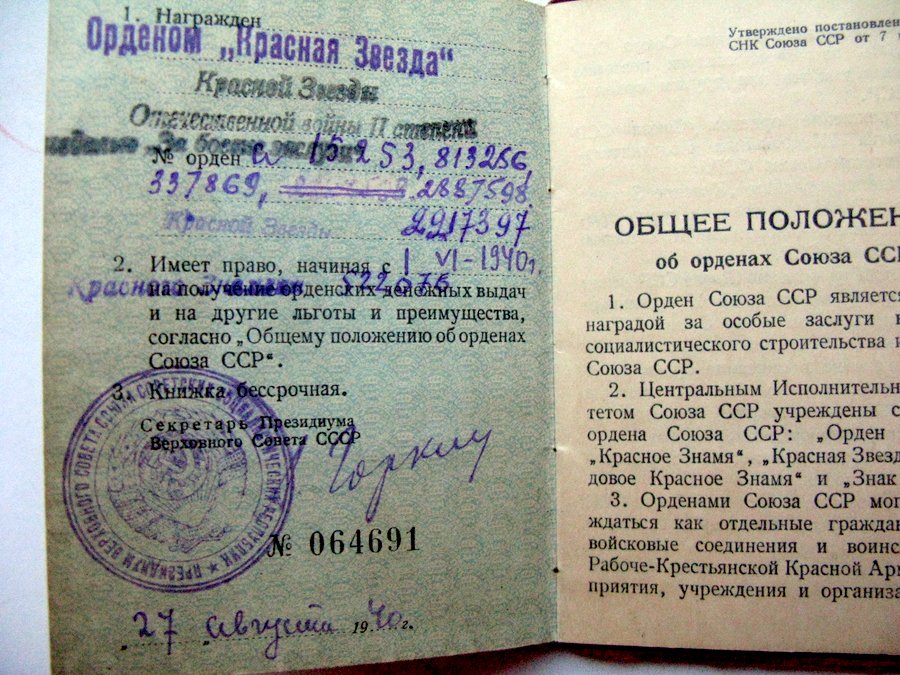 1. Награжден
Орденом „Красная Звезда“
Красной Звезды
Отечественной войны II степени
медалью „За боевые заслуги“
№ орден а 15253, 813286,
337869, 2887598.
Красной Звезды 2217397
2. Имеет право, начиная с 1 VI-1940г.
Красного Знамени 522676
на получение орденских денежных выдач
и на другие льготы и преимущества,
согласно „Общему положению об орденах
Союза ССР“.
3. Книжка бессрочная.
Секретарь Президиума
Верховного Совета СССР
Горкин
№ 064691
27 августа 1940 г.
ПРЕЗИДИУМ ВЕРХОВНОГО СОВЕТА СОЮЗА СОВЕТСКИХ СОЦИАЛИСТИЧЕСКИХ РЕСПУБЛИК
Утверждено постановлен
СНК Союза ССР от 7
ОБЩЕЕ ПОЛОЖЕН
об орденах Союза ССР
1. Орден Союза ССР является
наградой за особые заслуги
социалистического строительства и
Союза ССР.
2. Центральным Исполнитель
тетом Союза ССР учреждены с
ордена Союза ССР: „Орден
„Красное Знамя“, „Красная Звезд
довое Красное Знамя“ и „Знак
3. Орденами Союза ССР мог
ждаться как отдельные гражда
войсковые соединения и воинс
Рабоче-Крестьянской Красной Арм
приятия, учреждения и организа